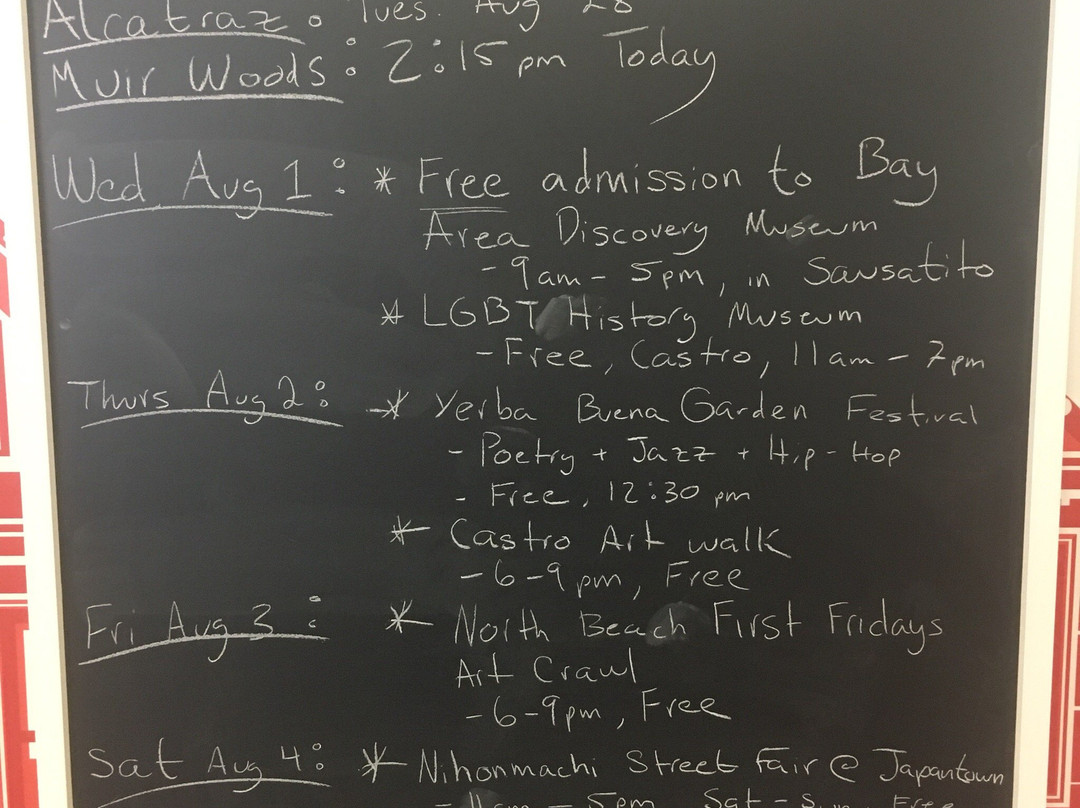 Alcatraz: Tues. Aug 28
Muir Woods: 2:15 pm Today
Wed Aug 1: * Free admission to Bay
Area Discovery Museum
- 9am - 5pm, in Sausatito
* LGBT History Museum
- Free, Castro, 11am - 7pm
Thurs Aug 2: * Yerba Buena Garden Festival
- Poetry + Jazz + Hip-Hop
- Free, 12:30 pm
* Castro Art walk
- 6-9pm, Free
Fri Aug 3: * North Beach First Fridays
Art Crawl
- 6-9pm, Free
Sat Aug 4: * Nihonmachi Street Fair @ Japantown
- 11am - 5pm Sat - Sun, Free